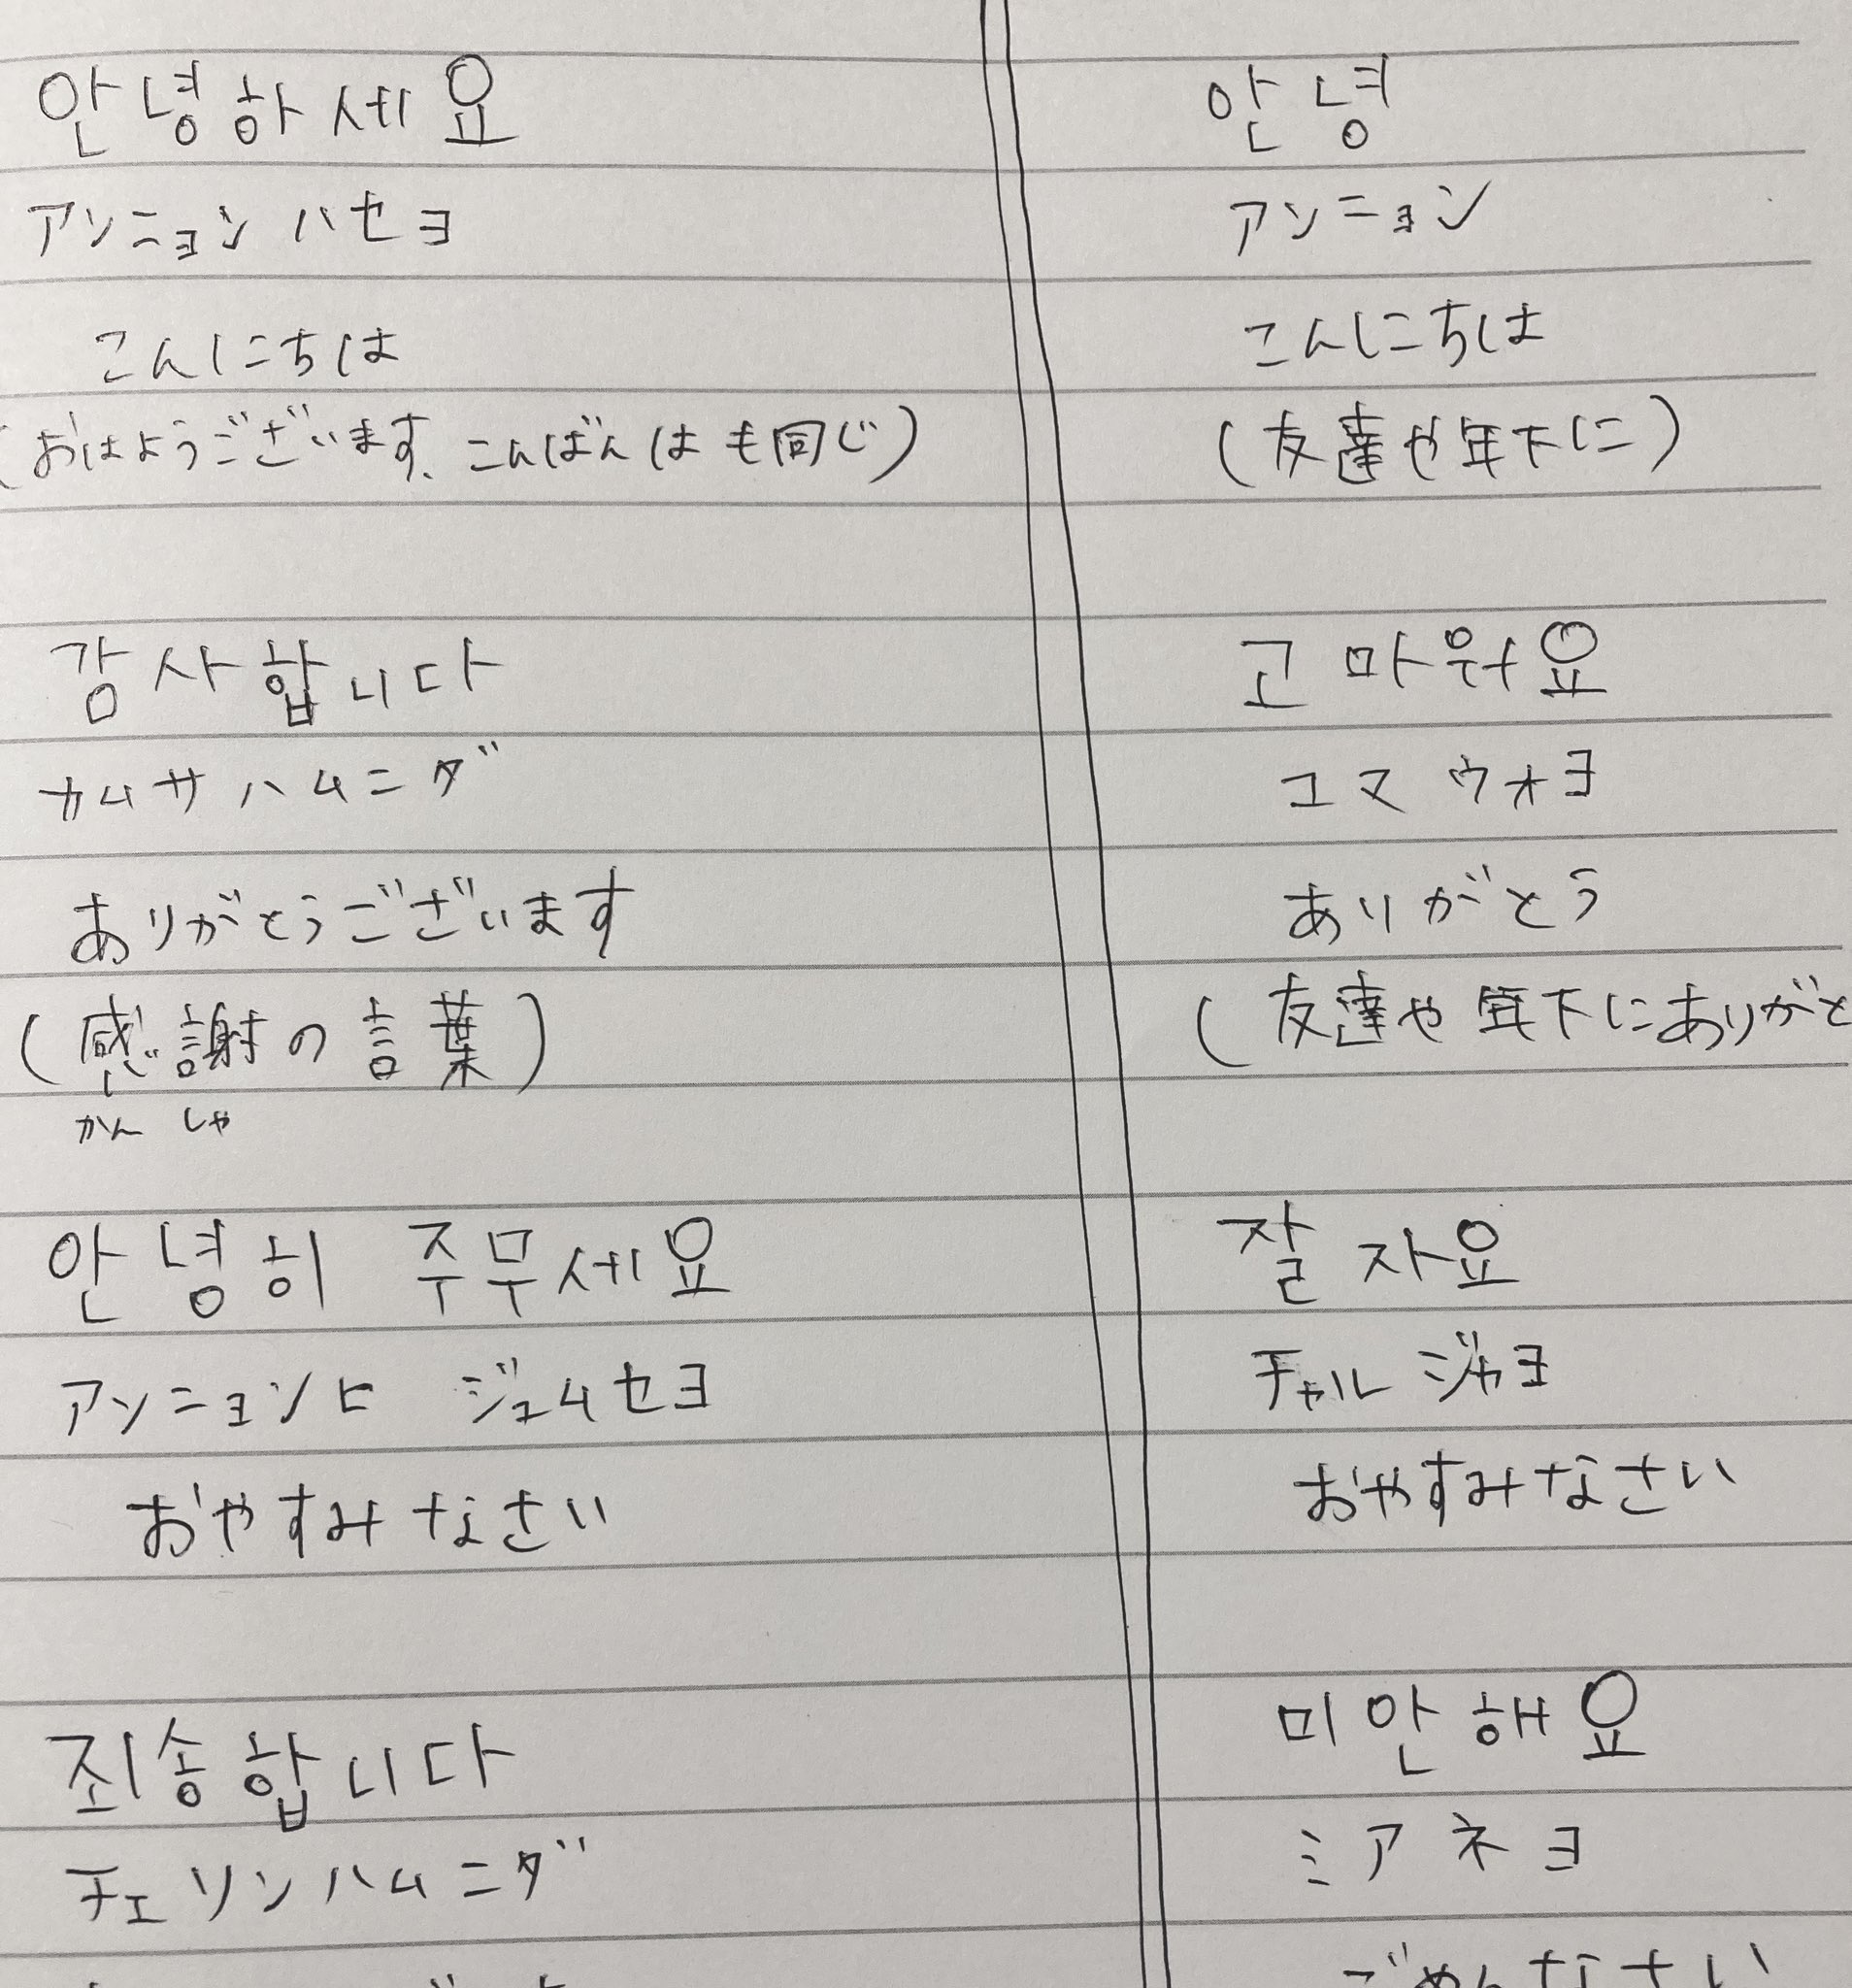 안녕하세요
アンニョンハセヨ
こんにちは
(おはようございます、こんばんはも同じ)
감사합니다
カムサハムニダ
ありがとうございます
(感謝の言葉)
かんしゃ
안녕히 주무세요
アンニョンヒ ジュムセヨ
おやすみなさい
죄송합니다
チェソンハムニダ
안녕
アンニョン
こんにちは
(友達や年下に)
고마워요
コマウォヨ
ありがとう
(友達や年下にありがと
잘 자요
チャル ジャヨ
おやすみなさい
미안해요
ミアネヨ
ごめんなさい